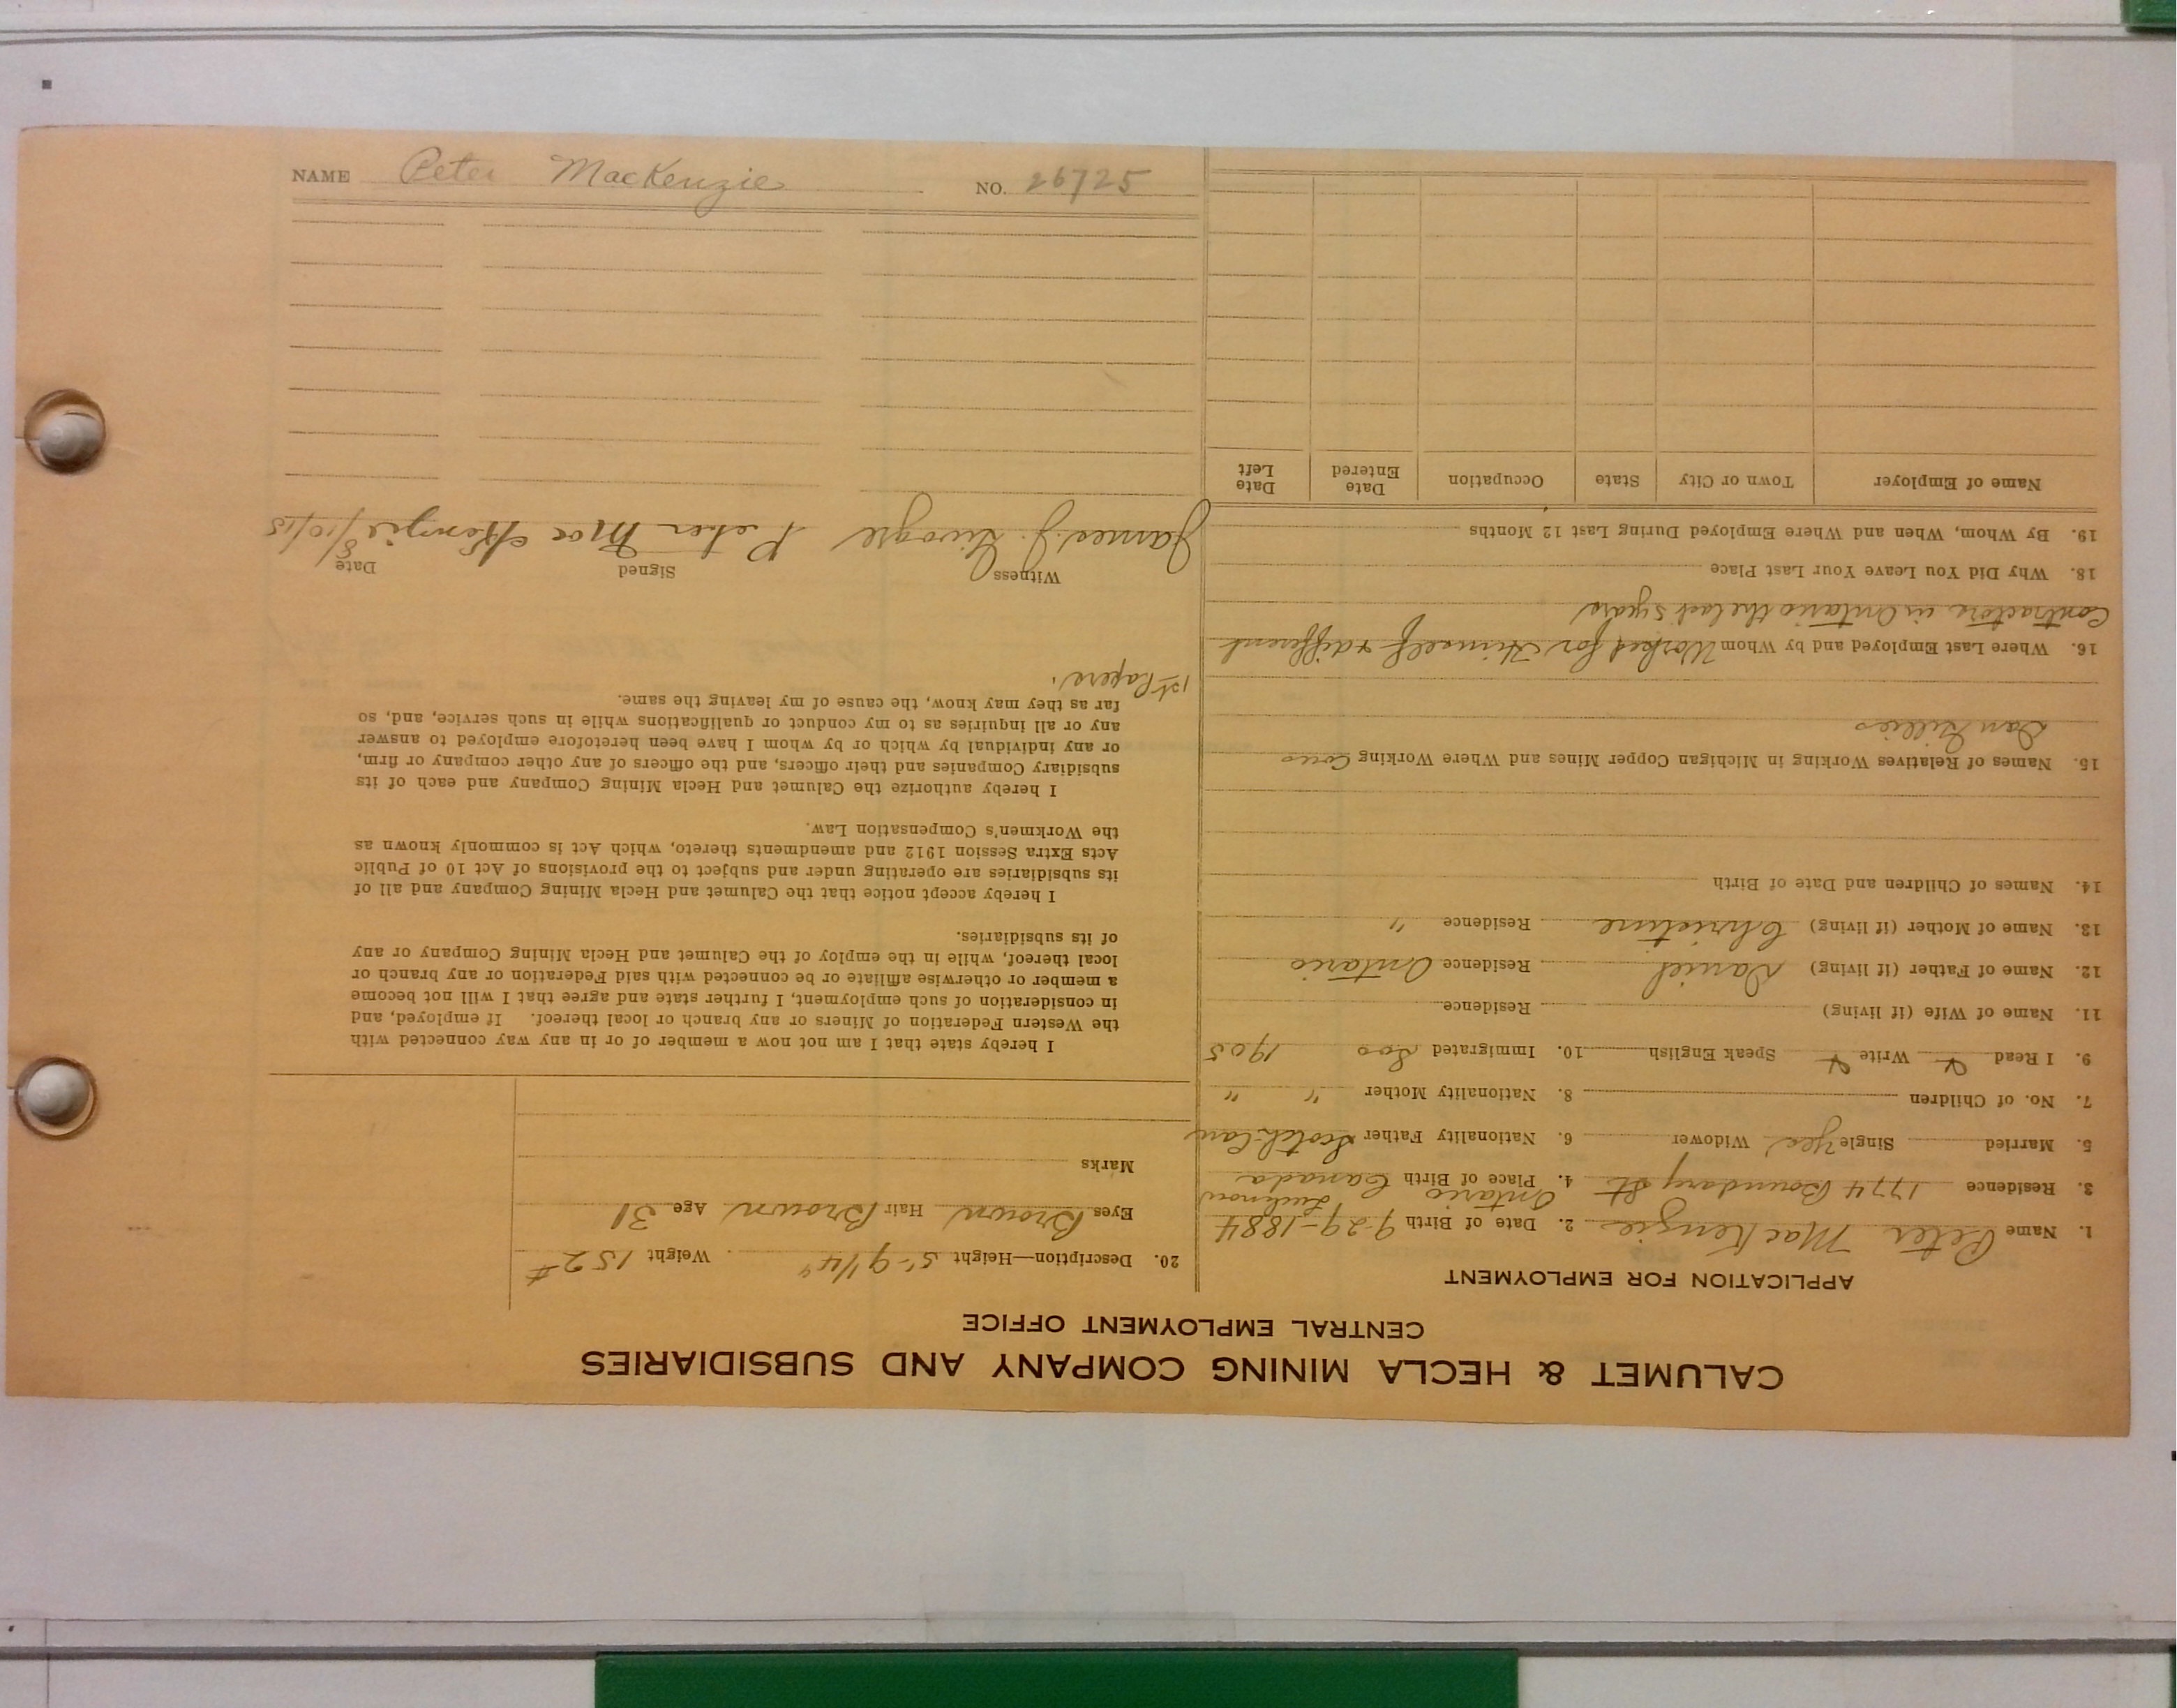 CALUMET & HECLA MINING COMPANY AND SUBSIDIARIES
CENTRAL EMPLOYMENT OFFICE
APPLICATION FOR EMPLOYMENT
1. Name Peter MacKenzie 2. Date of Birth 9-29-1884
Lucknow
3. Residence 1774 Boundary St 4. Place of Birth Ontario Canada
5. Married Single Yes Widower 6. Nationality Father Scotch-Can
7. No. of Children 8. Nationality Mother " "
9. I Read Y Write Y Speak English 10. Immigrated Soo 1905
11. Name of Wife (if living) Residence
12. Name of Father (if living) Daniel Residence Ontario
13. Name of Mother (if living) Christine Residence "
14. Names of Children and Date of Birth
15. Names of Relatives Working in Michigan Copper Mines and Where Working
Dan Gillies
16. Where Last Employed and by Whom Worked for Himself & different
Contractors in Ontario the last 5 years
18. Why Did You Leave Your Last Place
19. By Whom, When and Where Employed During Last 12 Months
Name of Employer Town or City State Occupation Date Entered Date Left
20. Description—Height 5'-9 1/4" Weight 152#
Eyes Brown Hair Brown Age 31
Marks
I hereby state that I am not now a member of or in any way connected with
the Western Federation of Miners or any branch or local thereof. If employed, and
in consideration of such employment, I further state and agree that I will not become
a member or otherwise affiliate or be connected with said Federation or any branch or
local thereof, while in the employ of the Calumet and Hecla Mining Company or any
of its subsidiaries.
I hereby accept notice that the Calumet and Hecla Mining Company and all of
its subsidiaries are operating under and subject to the provisions of Act 10 of Public
Acts Extra Session 1912 and amendments thereto, which Act is commonly known as
the Workmen's Compensation Law.
I hereby authorize the Calumet and Hecla Mining Company and each of its
subsidiary Companies and their officers, and the officers of any other company or firm,
or any individual by which or by whom I have been heretofore employed to answer
any or all inquiries as to my conduct or qualifications while in such service, and, so
far as they may know, the cause of my leaving the same.
1st Papers.
Witness Signed Date
James J. Peter MacKenzie 8/10/15
NAME Peter MacKenzie NO. 26725